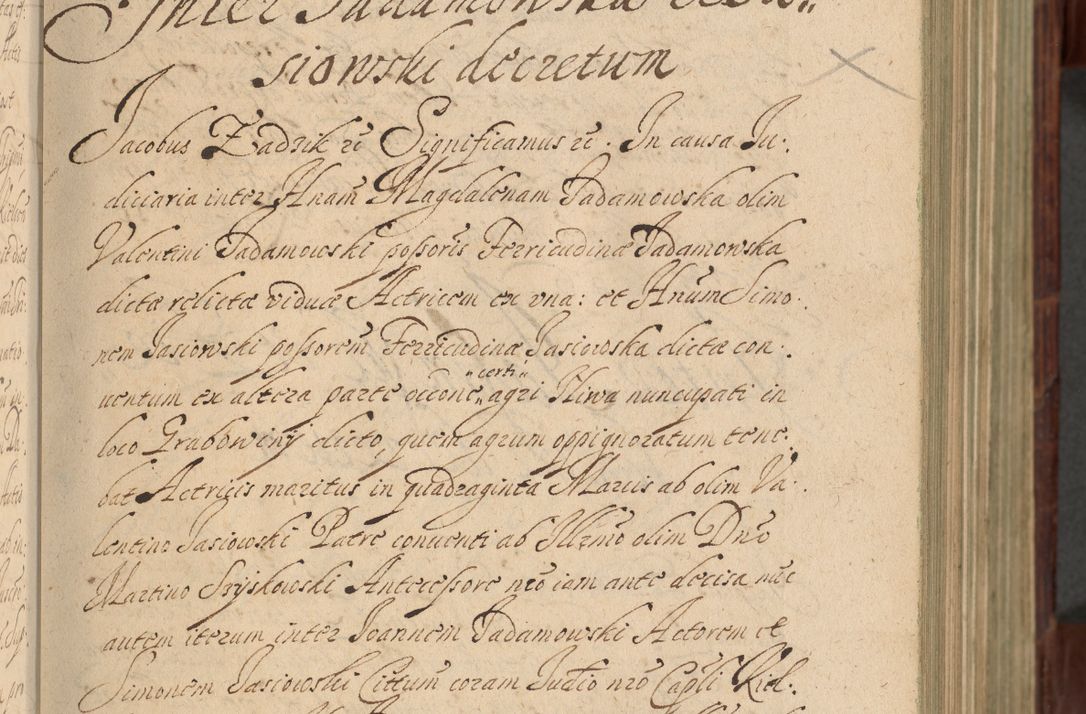 Inter Jadamowska et Ja„
siowski decretum
Jacobus Zadzik etc Significamus etc. In causa Ju:
diciaria inter Hnam Magdalenam Jadamowska olim
Valentini Jadamowski possoris Ferricudinæ Jadamowska
dictæ relictæ viduæ Actricem ex vna: et Hnum Simo:
nem Jasiowski possorem Ferricudinæ Jasiowska dictæ con:
uentum ex altera parte occone „certi„ agri Niwa nuncupati in
loco Grabowiny dicto, quem agrum oppignoratum tene:
bat Actricis maritus in quadraginta Marcis ab olim Va:
lentino Jasiowski Patre conuenti ab Illmo olim Dno
Martino Szyskowski Antecessore nro iam ante decisa nuc
autem iterum inter Joannem Jadamowski Actorem et
Simonem Jasiowski Cittum coram Judio nro Capli Kiel: